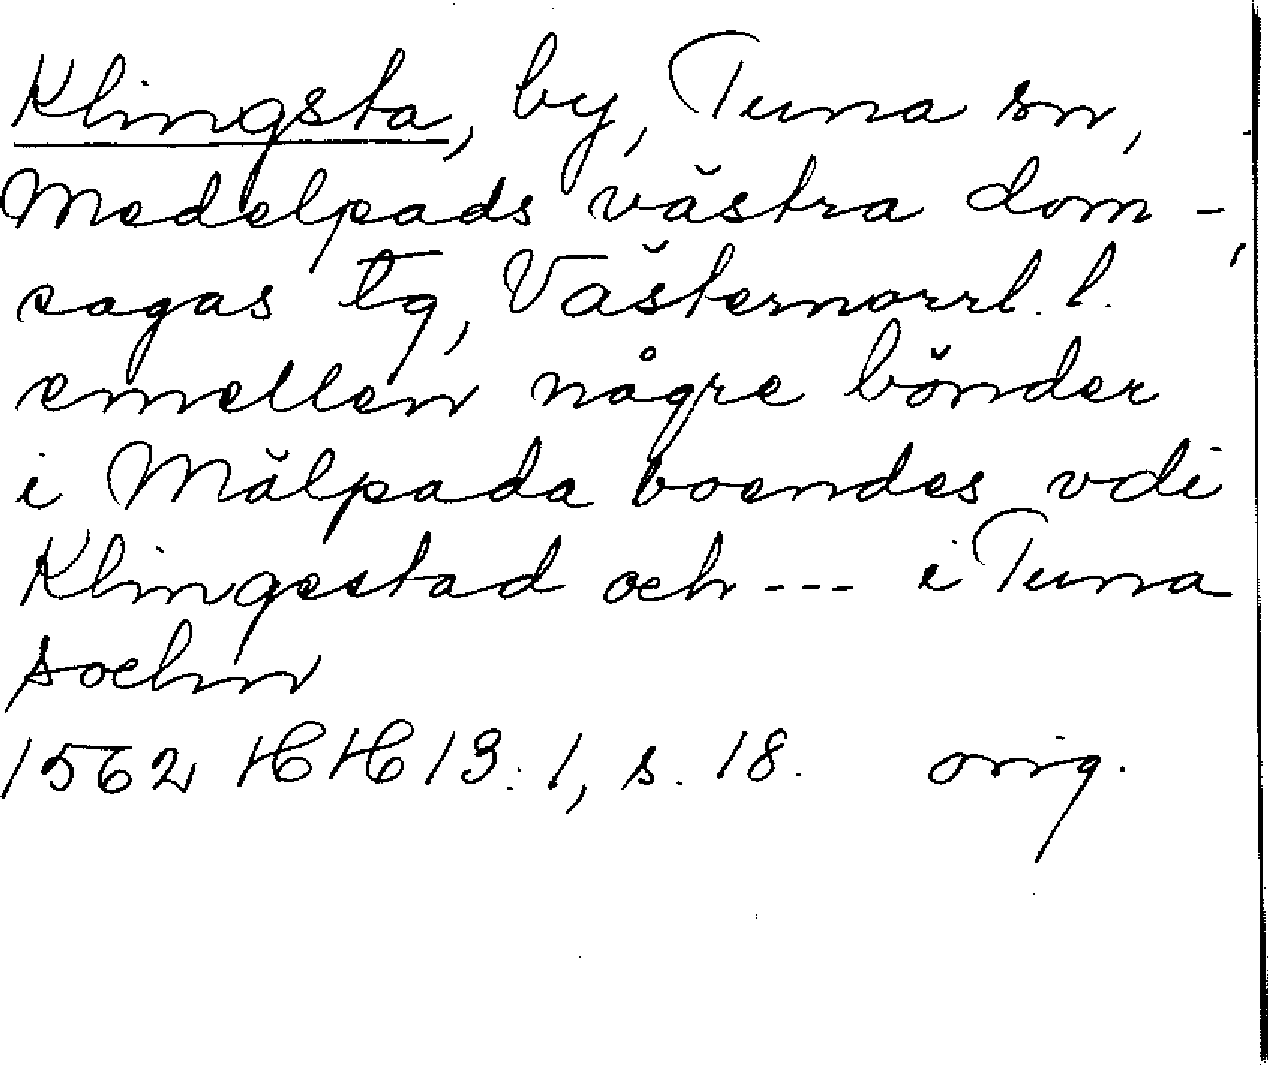 Klingsta, by, Tuna sn,
Medelpads västra dom-
sagas tg, Västernorrl. l.
emellen någre bönder
i Mälpada boendes vdi
Klingestad och --- i Tuna
sochn
1562 HH 13:1, s. 18. orig.